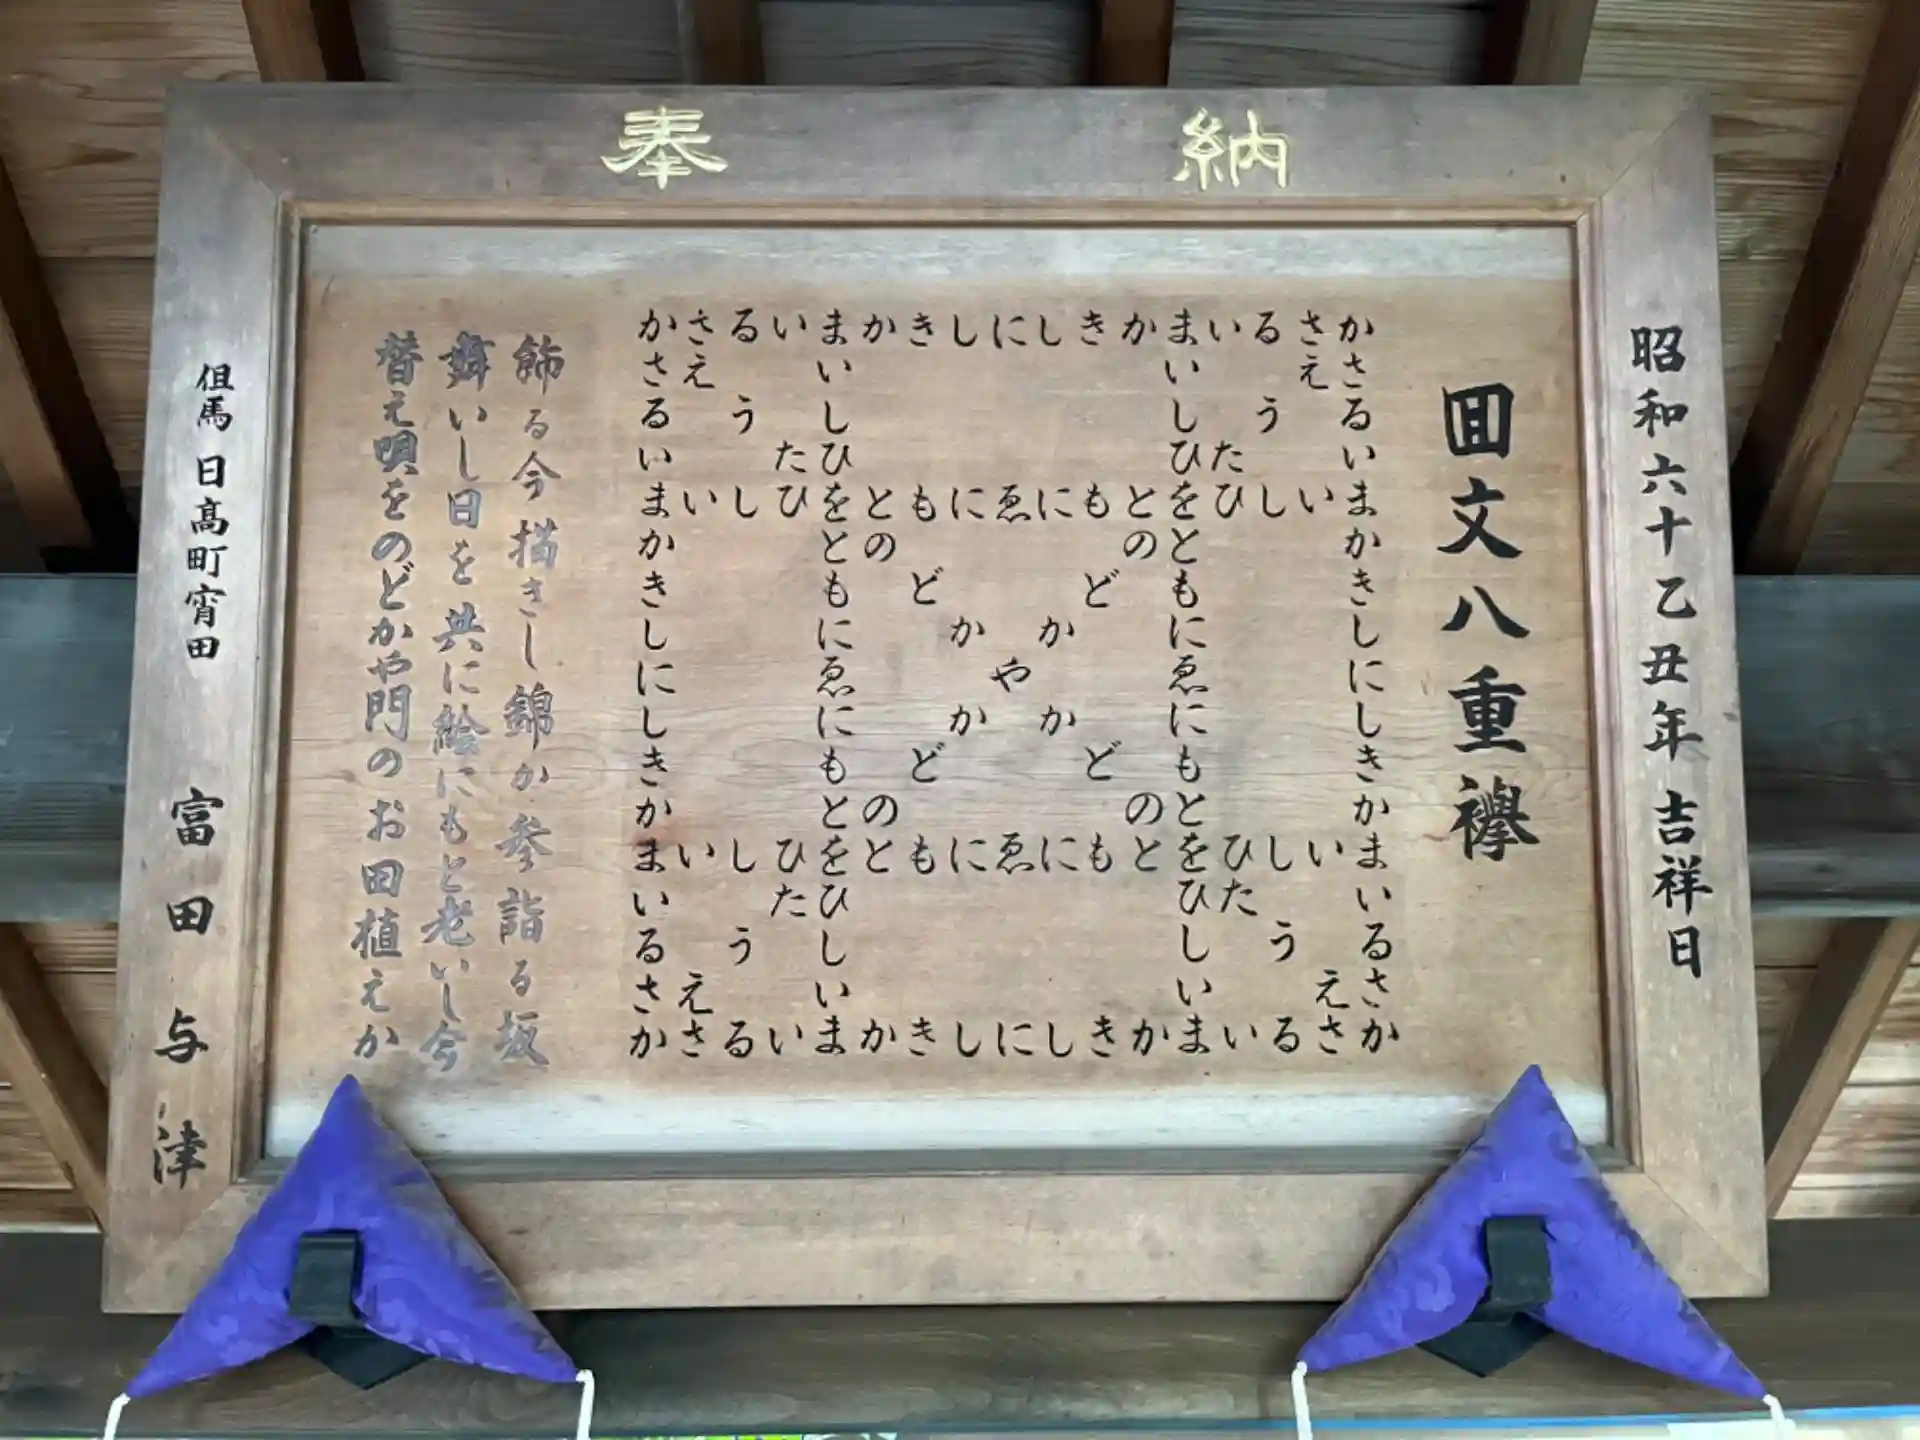 奉納
昭和六十乙丑年吉祥日
囬文八重襷
かさるいまかきしにしきかまいるさか
さえ い い えさ
る う し し う る
い たひ ひた い
まいしひをともにゑにもとをひしいま
か との のと か
き も ど ど も き
し に か か に し
に ゑ や ゑ に
し に か か に し
き も ど ど も き
か との のと か
まいしひをともにゑにもとをひしいま
い たひ ひた い
る う し し う る
さえ い い えさ
かさるいまかきしにしきかまいるさか
飾る今描きし錦か参詣る坂
舞いし日を共に絵にもと老いし今
替え唄をのどかや門のお田植えか
但馬 日高町宵田 富田与津